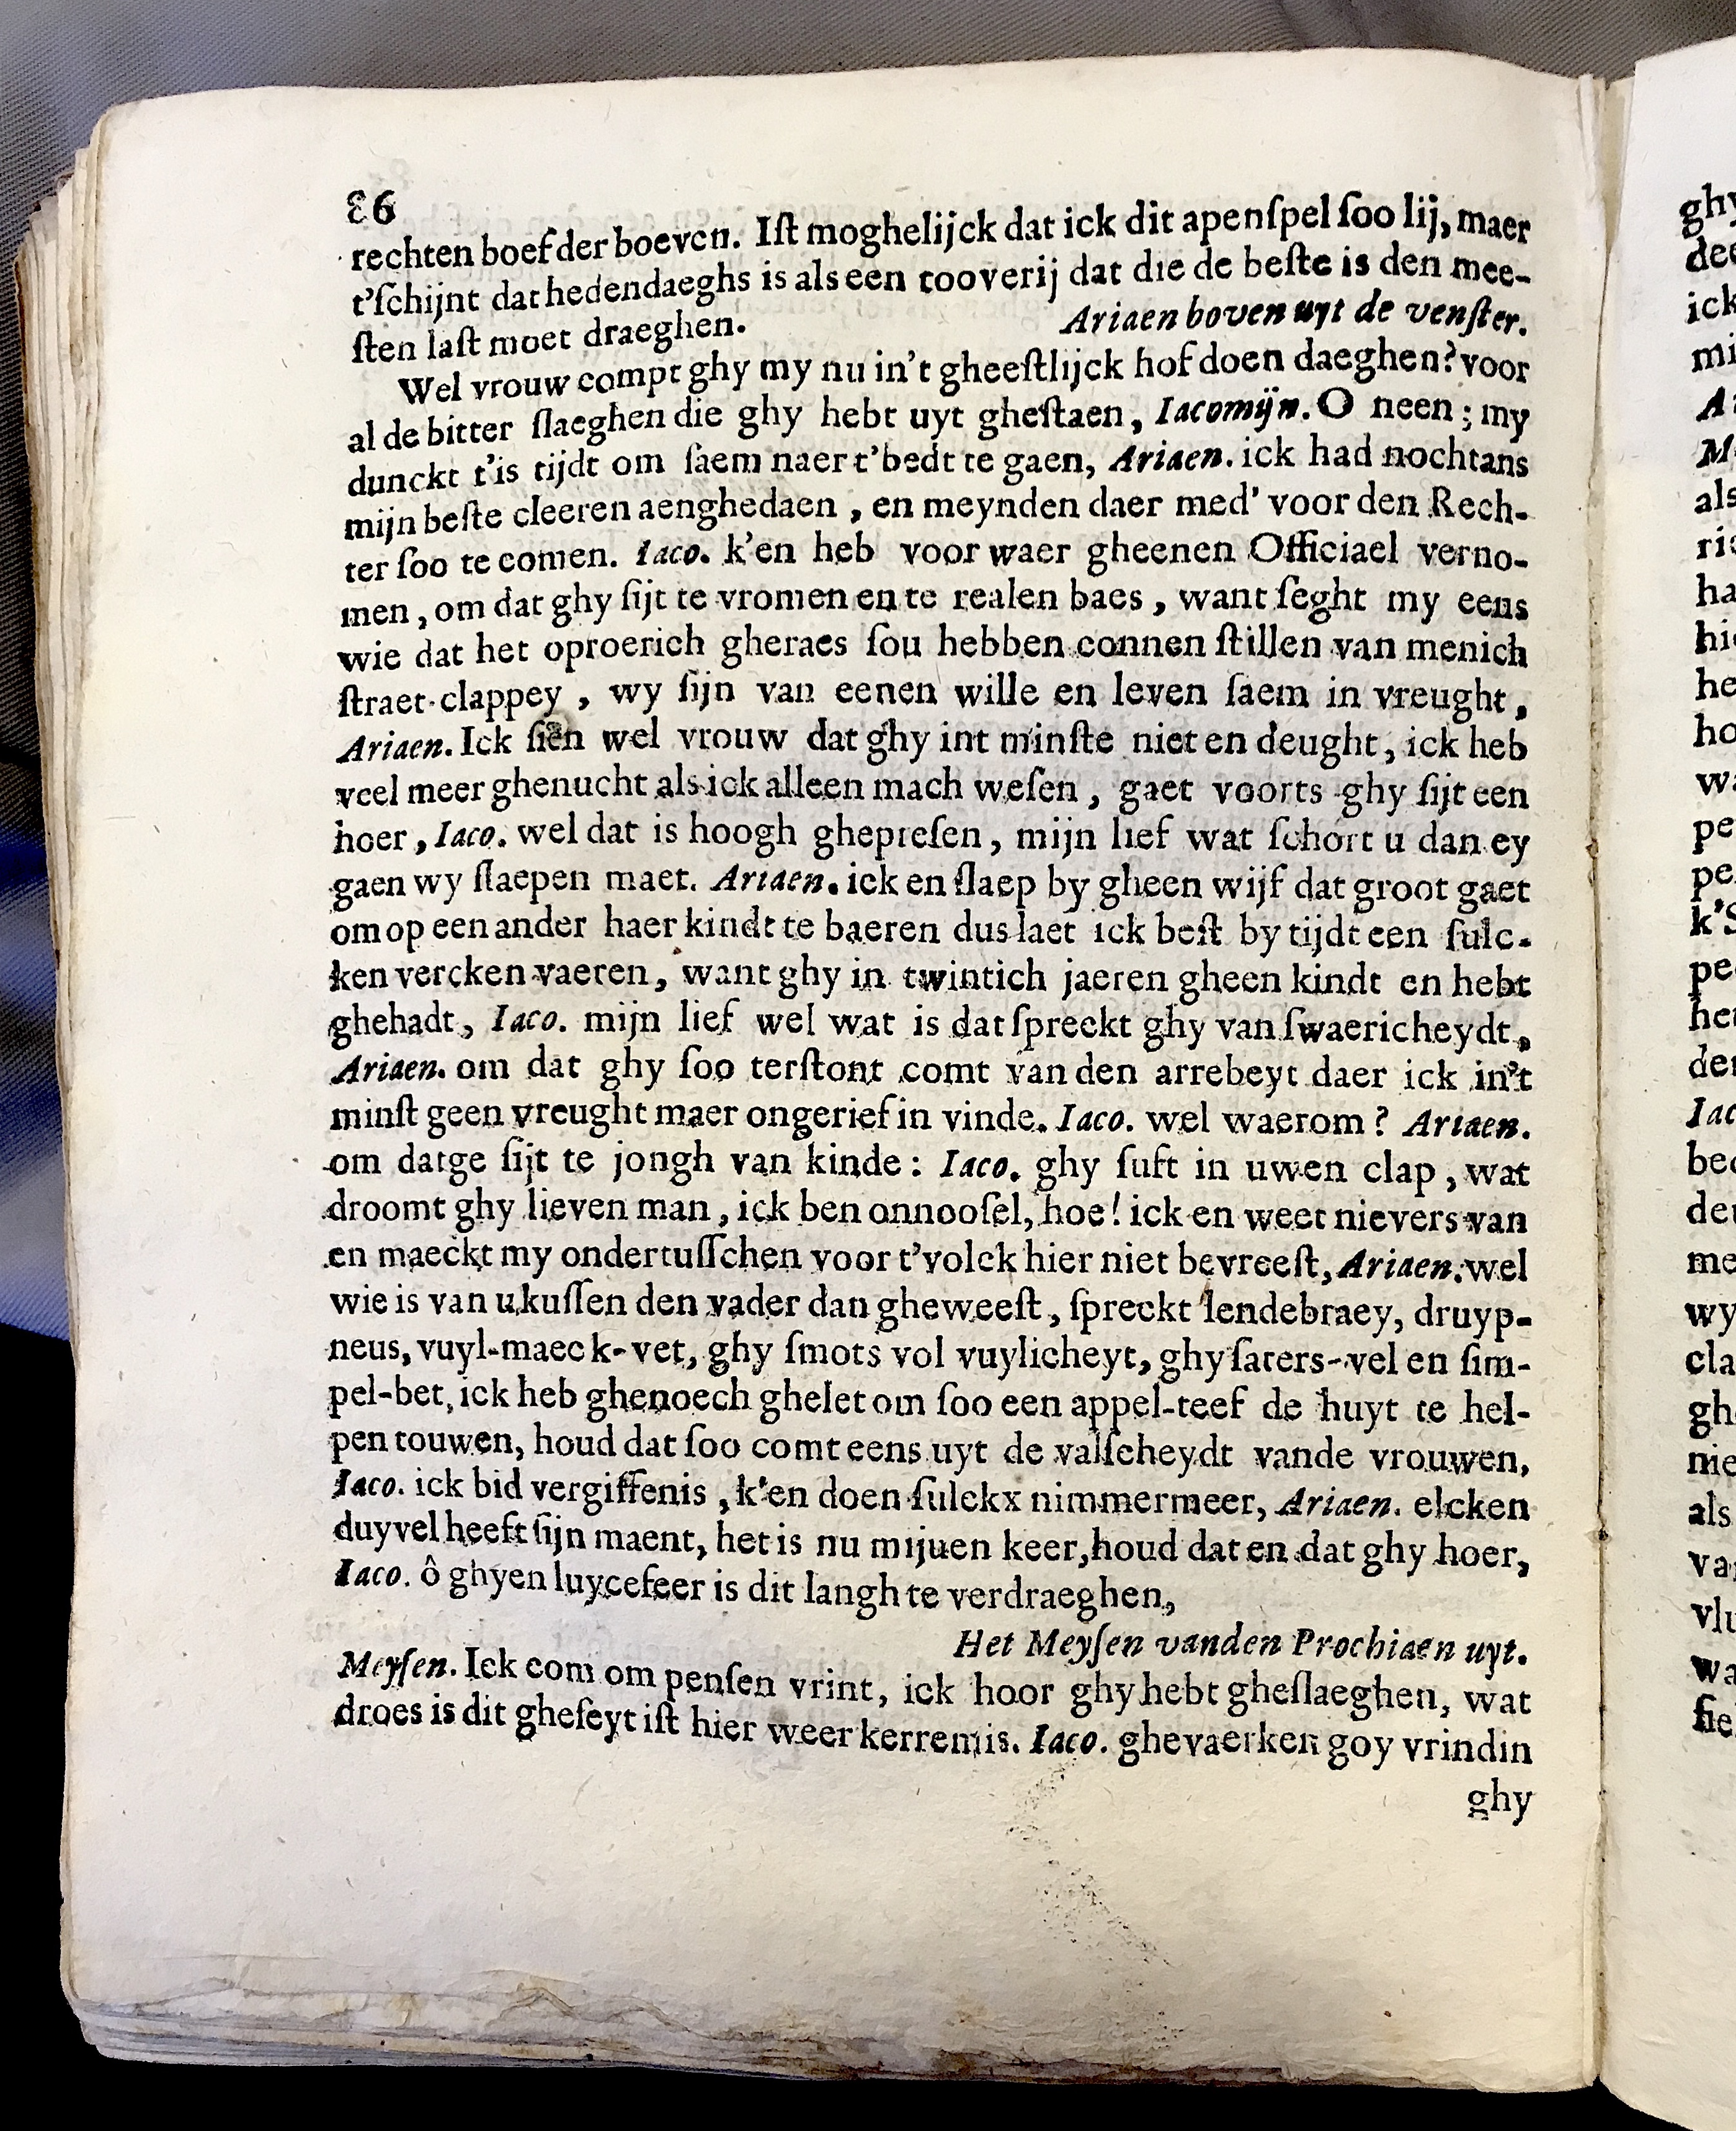 86
rechten boef der boeven. Iſt moghelijck dat ick dit apenſpel ſoo lij, maer
t'ſchijnt dat hedendaeghs is als een tooverij dat die de beſte is den mee-
ſten laſt moet draeghen. Ariaen boven uyt de venſter.
Wel vrouw compt ghy my nu in't gheeſtlijck hof doen daeghen? voor
al de bitter ſlaeghen die ghy hebt uyt gheſtaen, Iacomijn. O neen; my
dunckt t'is tijdt om ſaem naer t'bedt te gaen, Ariaen. ick had nochtans
mijn beſte cleeren aenghedaen, en meynden daer med' voor den Rech-
ter ſoo te comen. Iaco. k'en heb voor waer gheenen Officiael verno-
men, om dat ghy ſijt te vromen en te realen baes, want ſeght my eens
wie dat het oproerich gheraes ſou hebben connen ſtillen van menich
ſtraet-clappey, wy ſijn van eenen wille en leven ſaem in vreught,
Ariaen. Ick ſien wel vrouw dat ghy int minſte niet en deught, ick heb
veel meer ghenucht als ick alleen mach weſen, gaet voorts ghy ſijt een
hoer, Iaco. wel dat is hoogh ghepreſen, mijn lief wat ſchort u dan ey
gaen wy ſlaepen maet. Ariaen. ick en ſlaep by gheen wijf dat groot gaet
om op een ander haer kindt te baeren dus laet ick beſt by tijdt een ſulc-
ken vercken vaeren, want ghy in twintich jaeren gheen kindt en hebt
ghehadt, Iaco. mijn lief wel wat is dat ſpreckt ghy van ſwaericheydt,
Ariaen. om dat ghy ſoo terſtont comt van den arrebeyt daer ick in't
minſt geen vreught maer ongerief in vinde. Iaco. wel waerom? Ariaen.
om datge ſijt te jongh van kinde: Iaco. ghy ſuft in uwen clap, wat
droomt ghy lieven man, ick ben onnooſel, hoe! ick en weet nievers van
en maeckt my ondertuſſchen voor t'volck hier niet bevreeſt, Ariaen. wel
wie is van u kuſſen den vader dan gheweeſt, ſpreckt lendebraey, druyp-
neus, vuyl-maeck-vet, ghy ſmots vol vuylicheyt, ghy ſaters-vel en ſim-
pel-bet, ick heb ghenoech ghelet om ſoo een appel-teef de huyt te hel-
pen touwen, houd dat ſoo comt eens uyt de valſcheydt vande vrouwen,
Iaco. ick bid vergiffenis, k'en doen ſulckx nimmermeer, Ariaen. elcken
duyvel heeft ſijn maent, het is nu mijuen keer, houd dat en dat ghy hoer,
Iaco. ô ghyen luycefeer is dit langh te verdraeghen,
Het Meyſen vanden Prochiaen uyt.
Meyſen. Ick com om penſen vrint, ick hoor ghy hebt gheſlaeghen, wat
droes is dit gheſeyt iſt hier weer kerremis. Iaco. ghevaerken goy vrindin
ghy